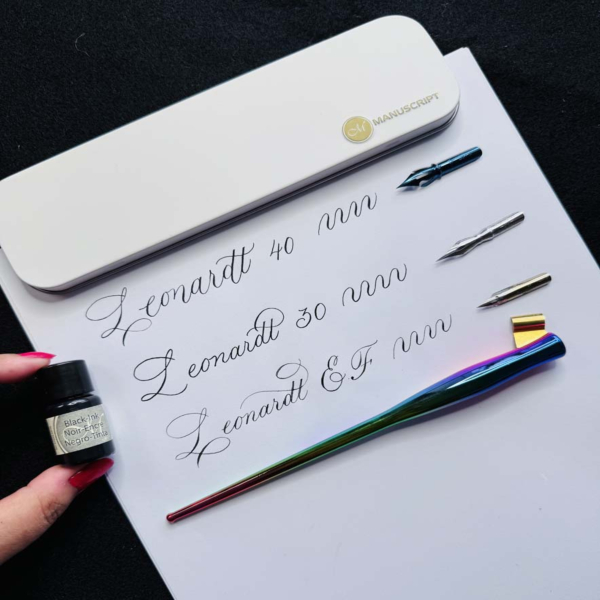 M MANUSCRIPT
Leonardt 40
Leonardt 30
Leonardt EF
Black Ink
Noir-Encre
Negro-Tinta